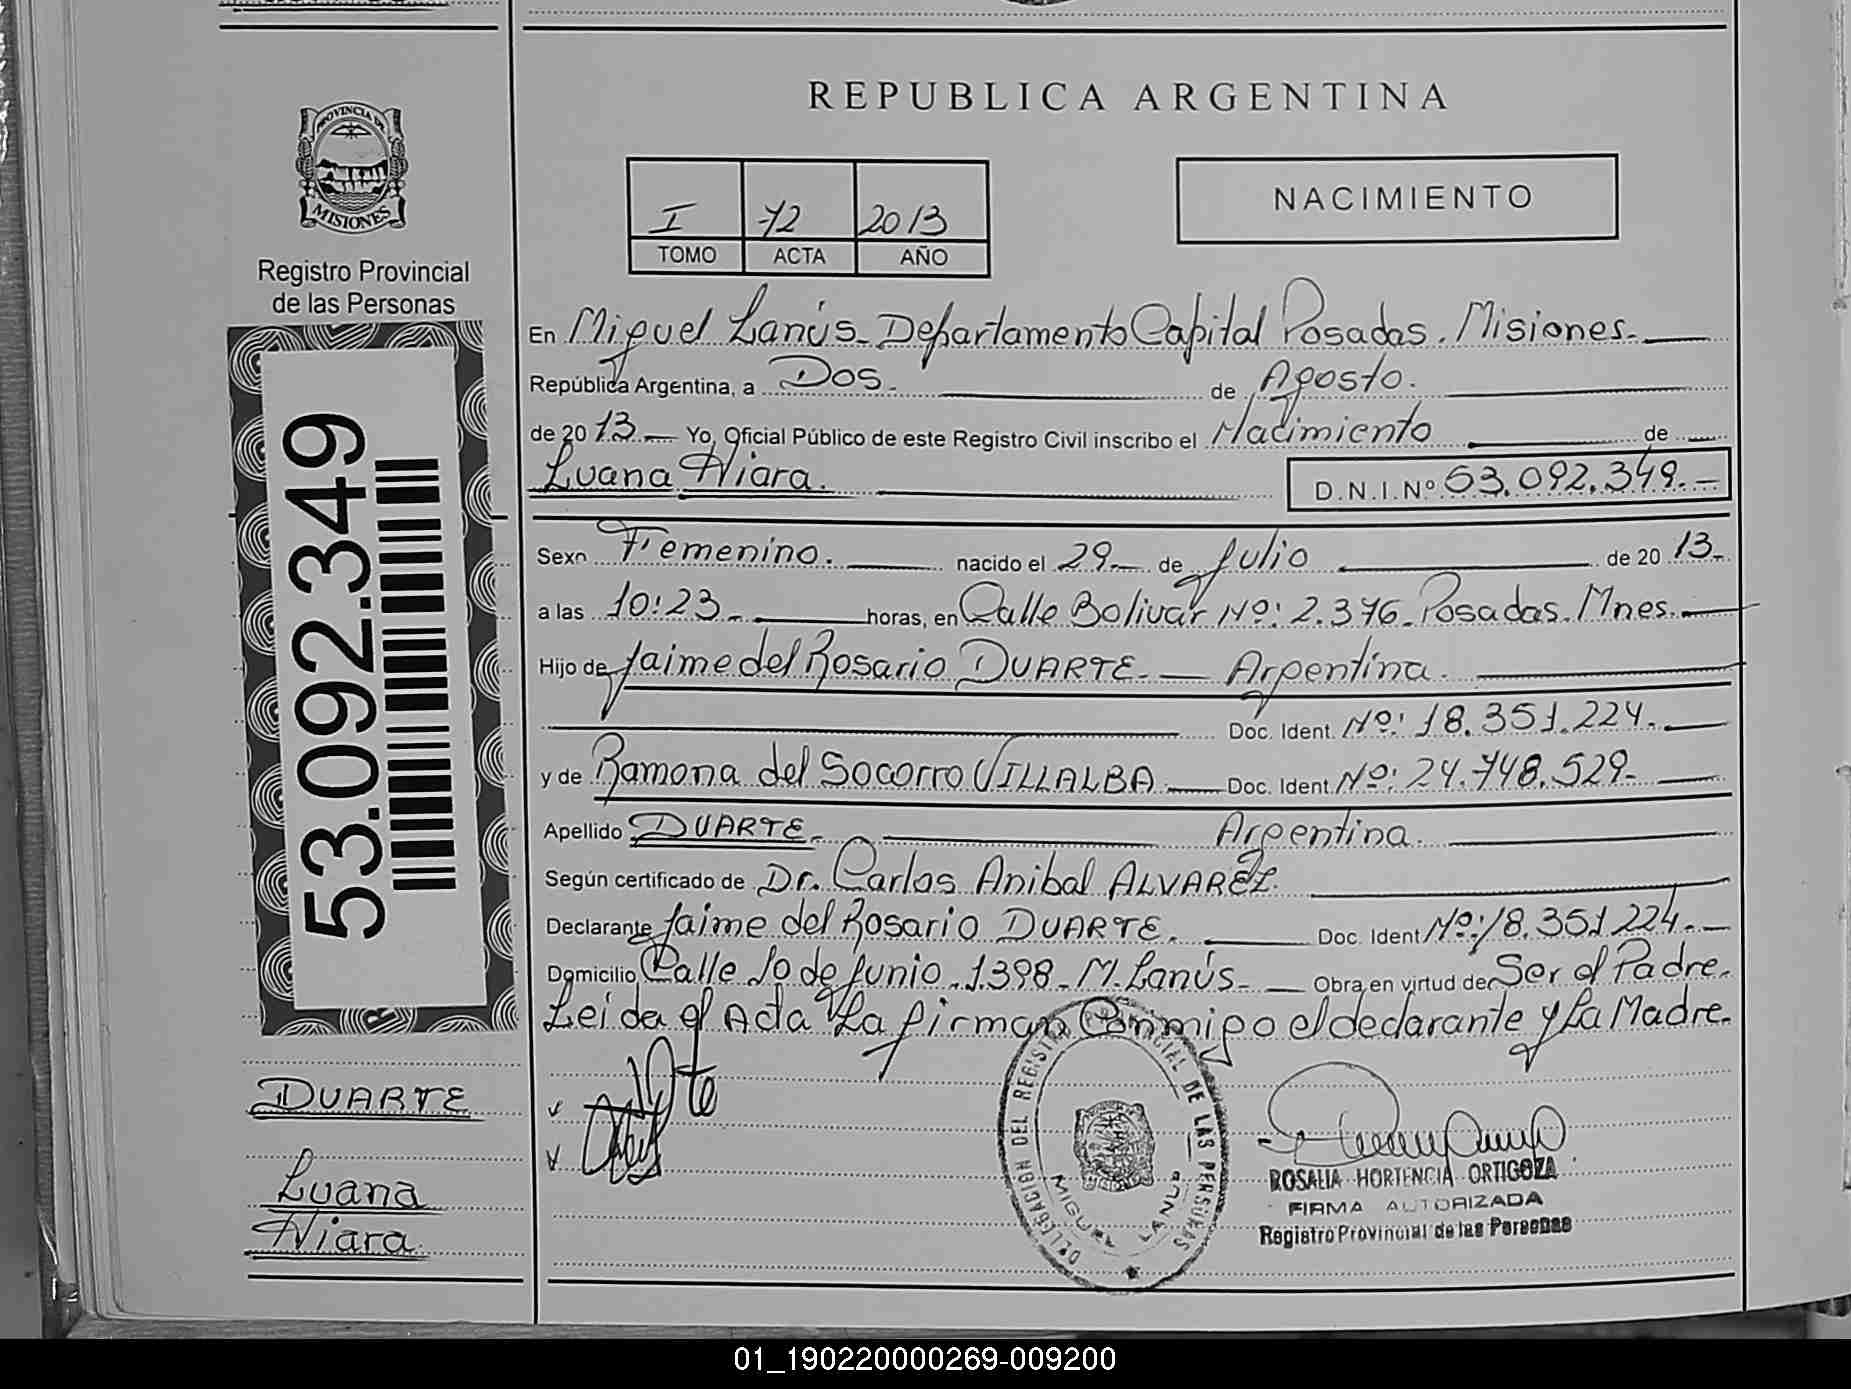 REPUBLICA ARGENTINA
PROVINCIA DE
MISIONES
Registro Provincial
de las Personas
53.092.349
I 72 2013
TOMO ACTA AÑO
NACIMIENTO
En Miguel Lanús - Departamento Capital Posadas. Misiones.
República Argentina, a Dos. de Agosto.
de 2013 Yo, Oficial Público de este Registro Civil inscribo el Nacimiento de
Luana Niara. D.N.I.Nº 53.092.349.-
Sexo Femenino. nacido el 29 de Julio de 2013.
a las 10:23 horas, en Calle Bolivar Nº: 2.376. Posadas. Mnes.
Hijo de Jaime del Rosario DUARTE. Argentina.
Doc. Ident. Nº: 18.351.224.
y de Ramona del Socorro VILLALBA Doc. Ident. Nº: 24.748.529.
Apellido DUARTE. Argentina.
Según certificado de Dr. Carlos Anibal ALVAREZ.
Declarante Jaime del Rosario DUARTE. Doc. Ident. Nº: 18.351.224.
Domicilio Calle 10 de Junio 1.398 - M. Lanús - Obra en virtud de Ser el Padre.
Leida el Acta La firman Conmigo el declarante y La Madre.
DUARTE
Luana
Niara
DELEGACION DEL REGISTRO PROVINCIAL DE LAS PERSONAS
MIGUEL LANUS
ROSALIA HORTENCIA ORTIGOZA
FIRMA AUTORIZADA
Registro Provincial de las Personas
01_190220000269-009200